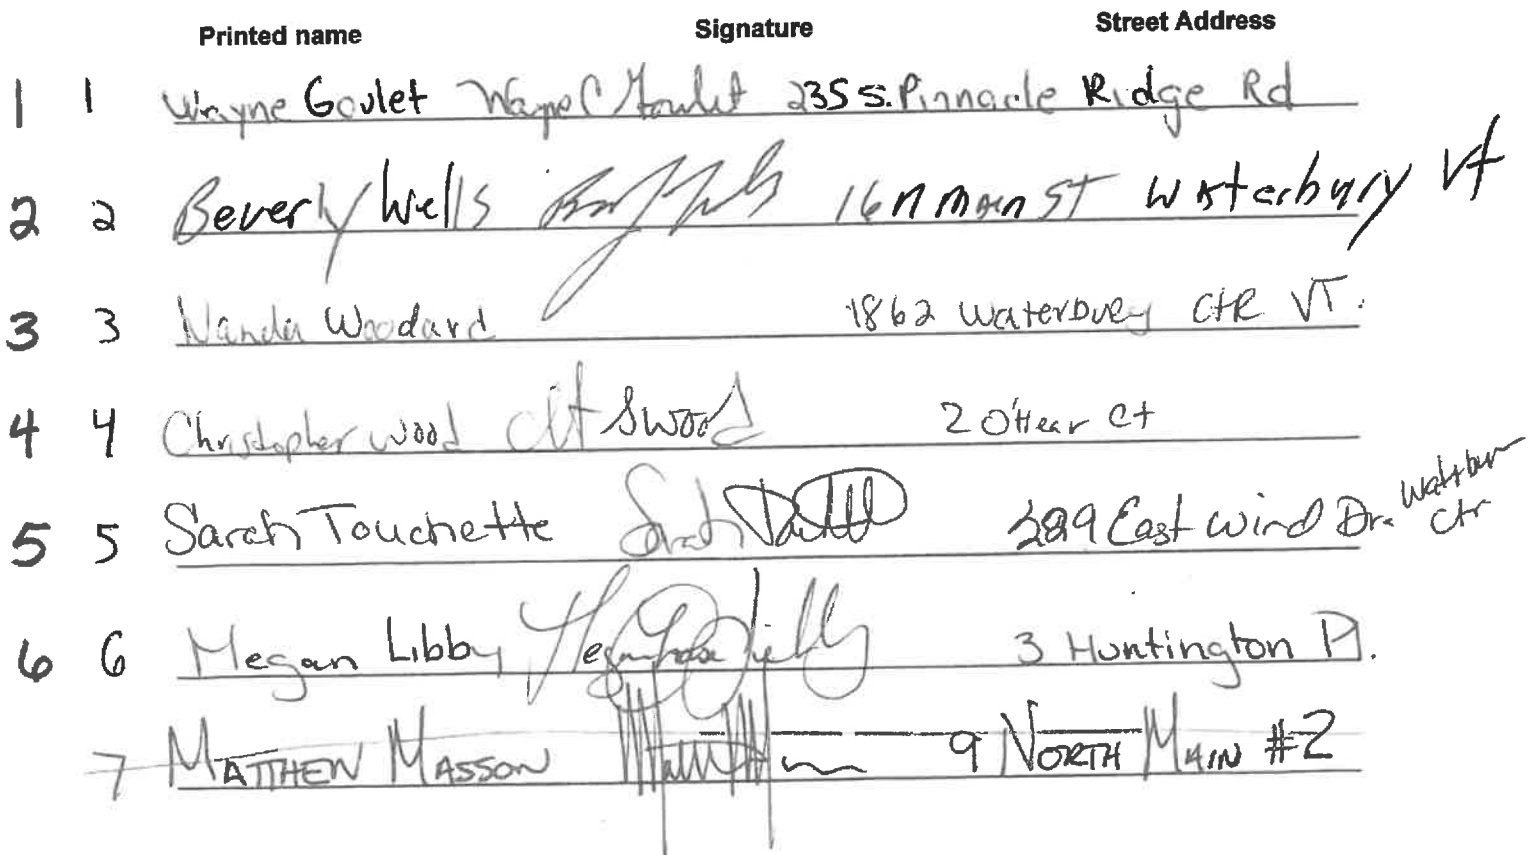 Printed name Signature Street Address
1 1 Wayne Goulet Wayne C Goulet 235 S. Pinnacle Ridge Rd
2 2 Beverly Wells 16 N Main ST Waterbury Vt
3 3 Wanda Woodard 1862 Waterbury Ctr VT.
4 4 Christopher Wood S Wood 2 O'Hear Ct
5 5 Sarah Touchette Sarah 289 East Wind Dr. Ctr
6 6 Megan Libby Megan Libby 3 Huntington Pl.
7 MATTHEW MASSON 9 NORTH MAIN #2